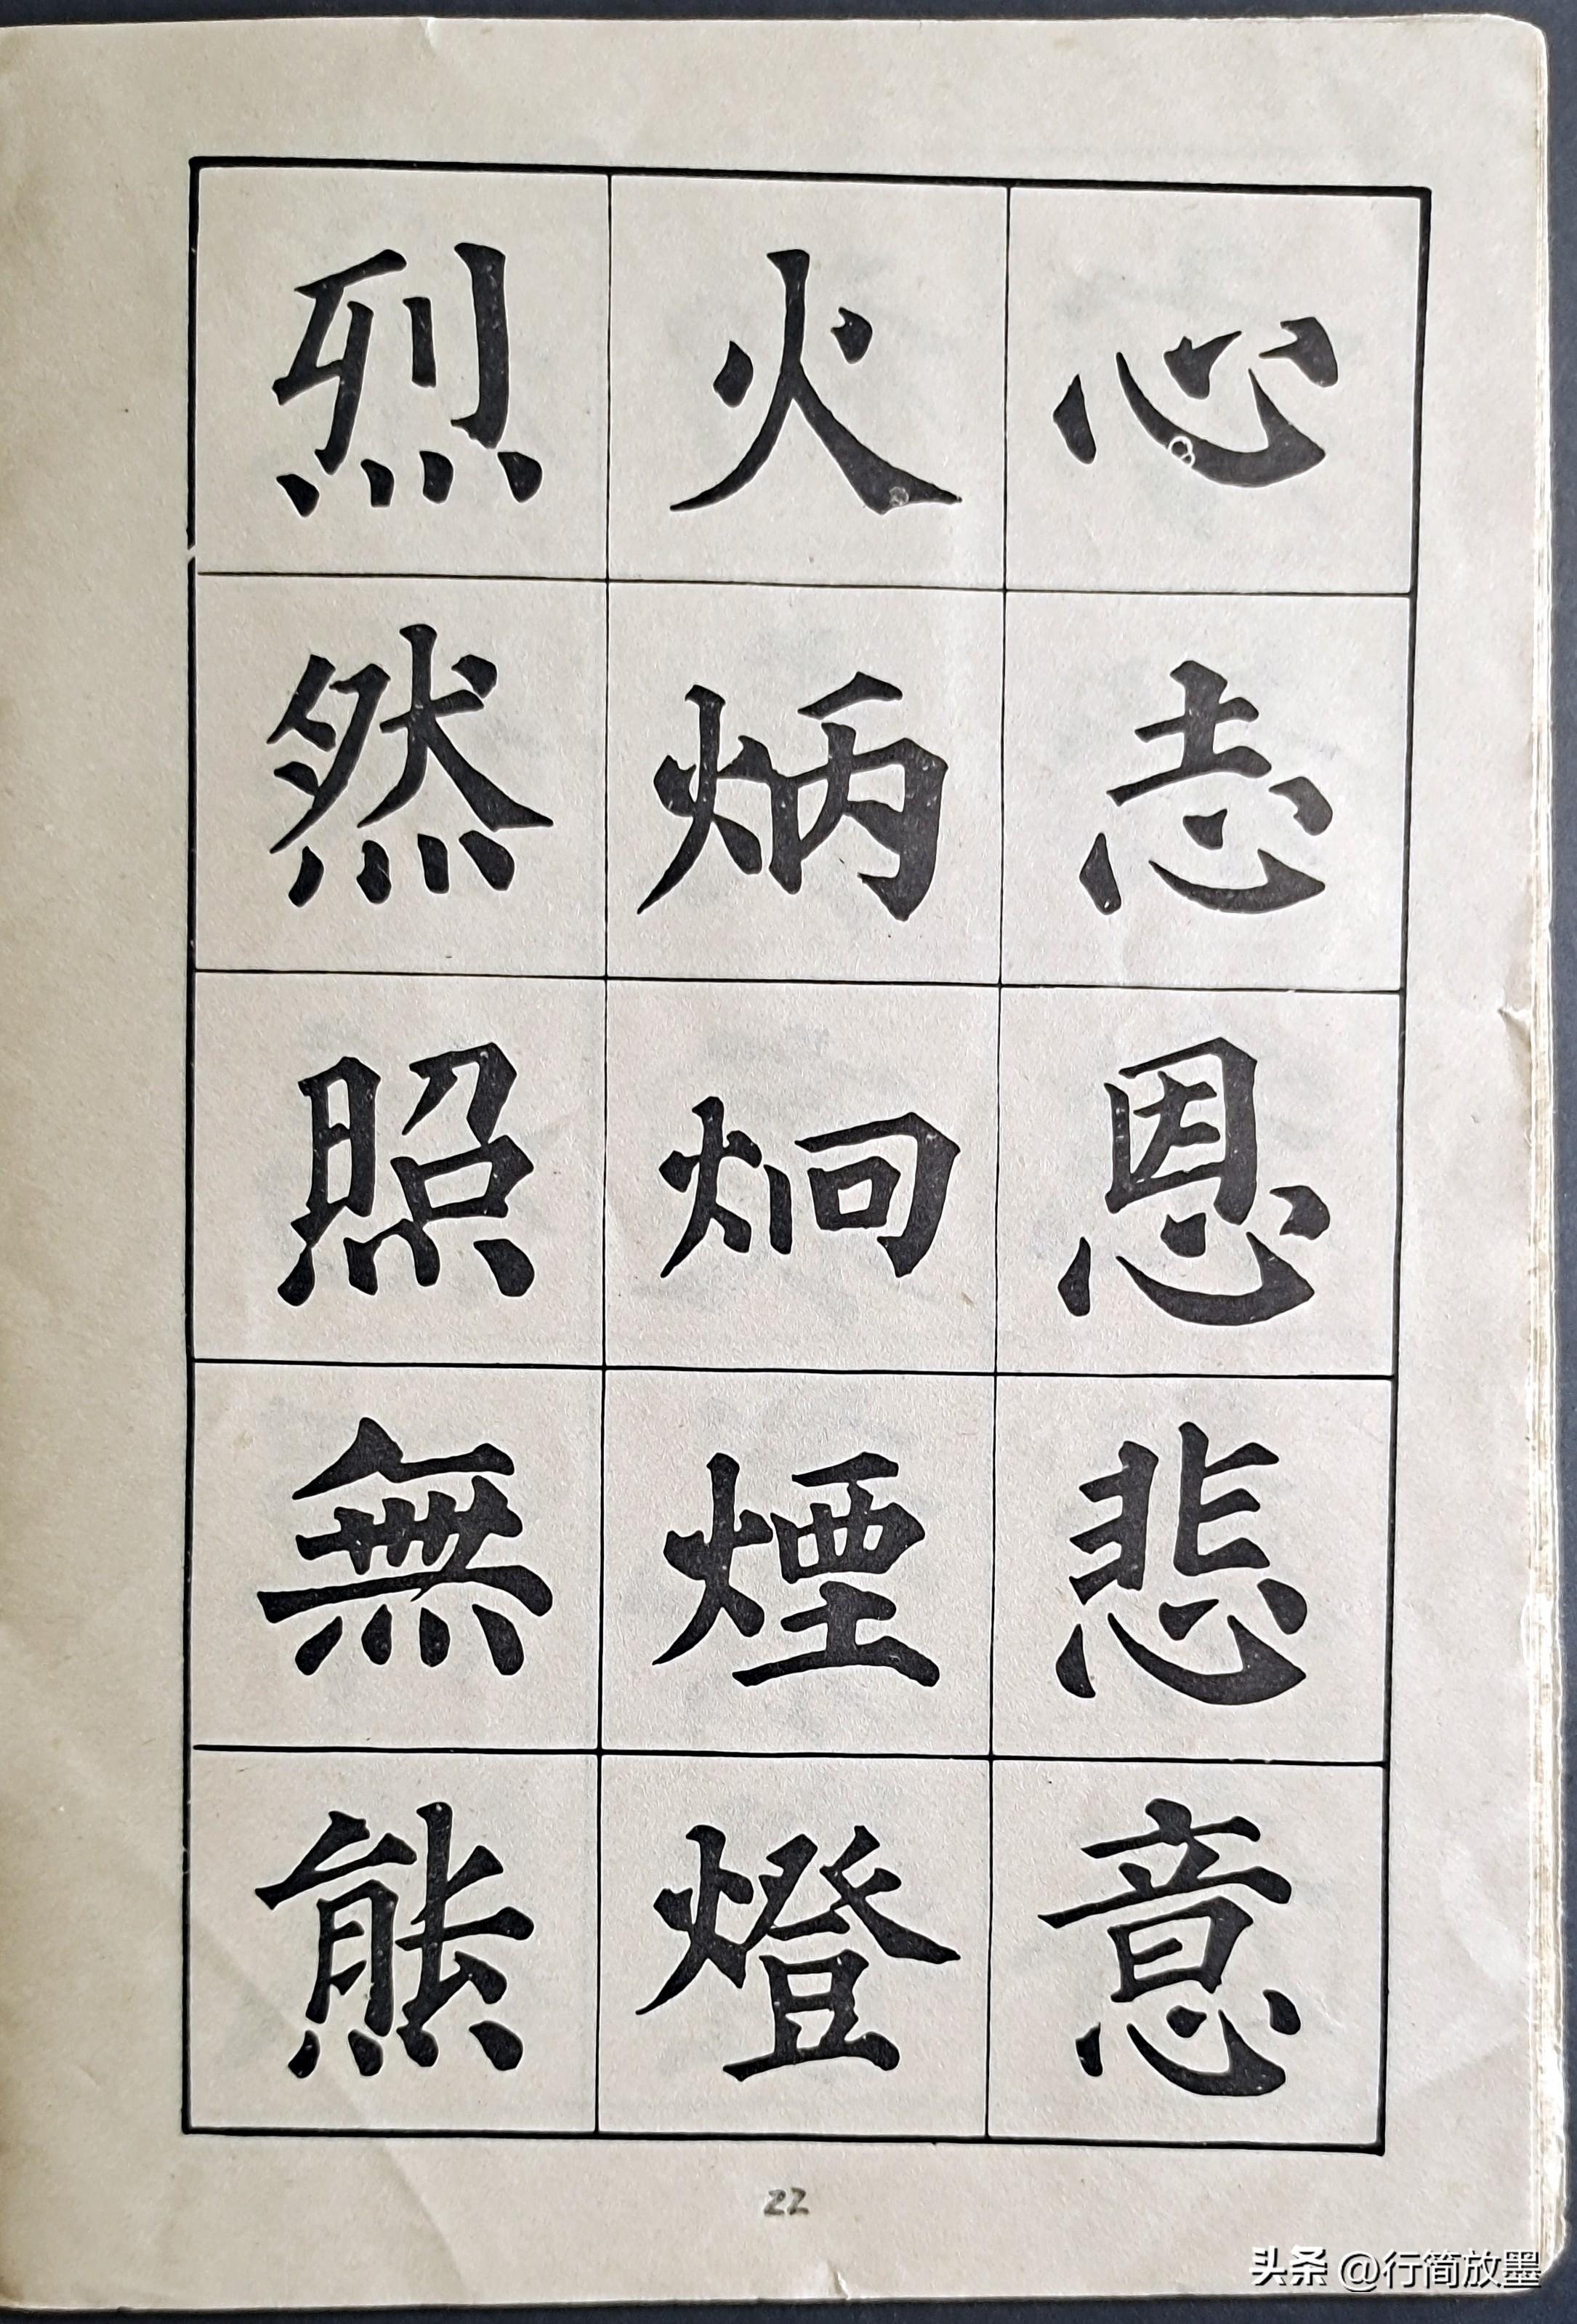 心志恩悲意
火炳炯煙燈
烈然照無熊
22
头条 @行简放墨